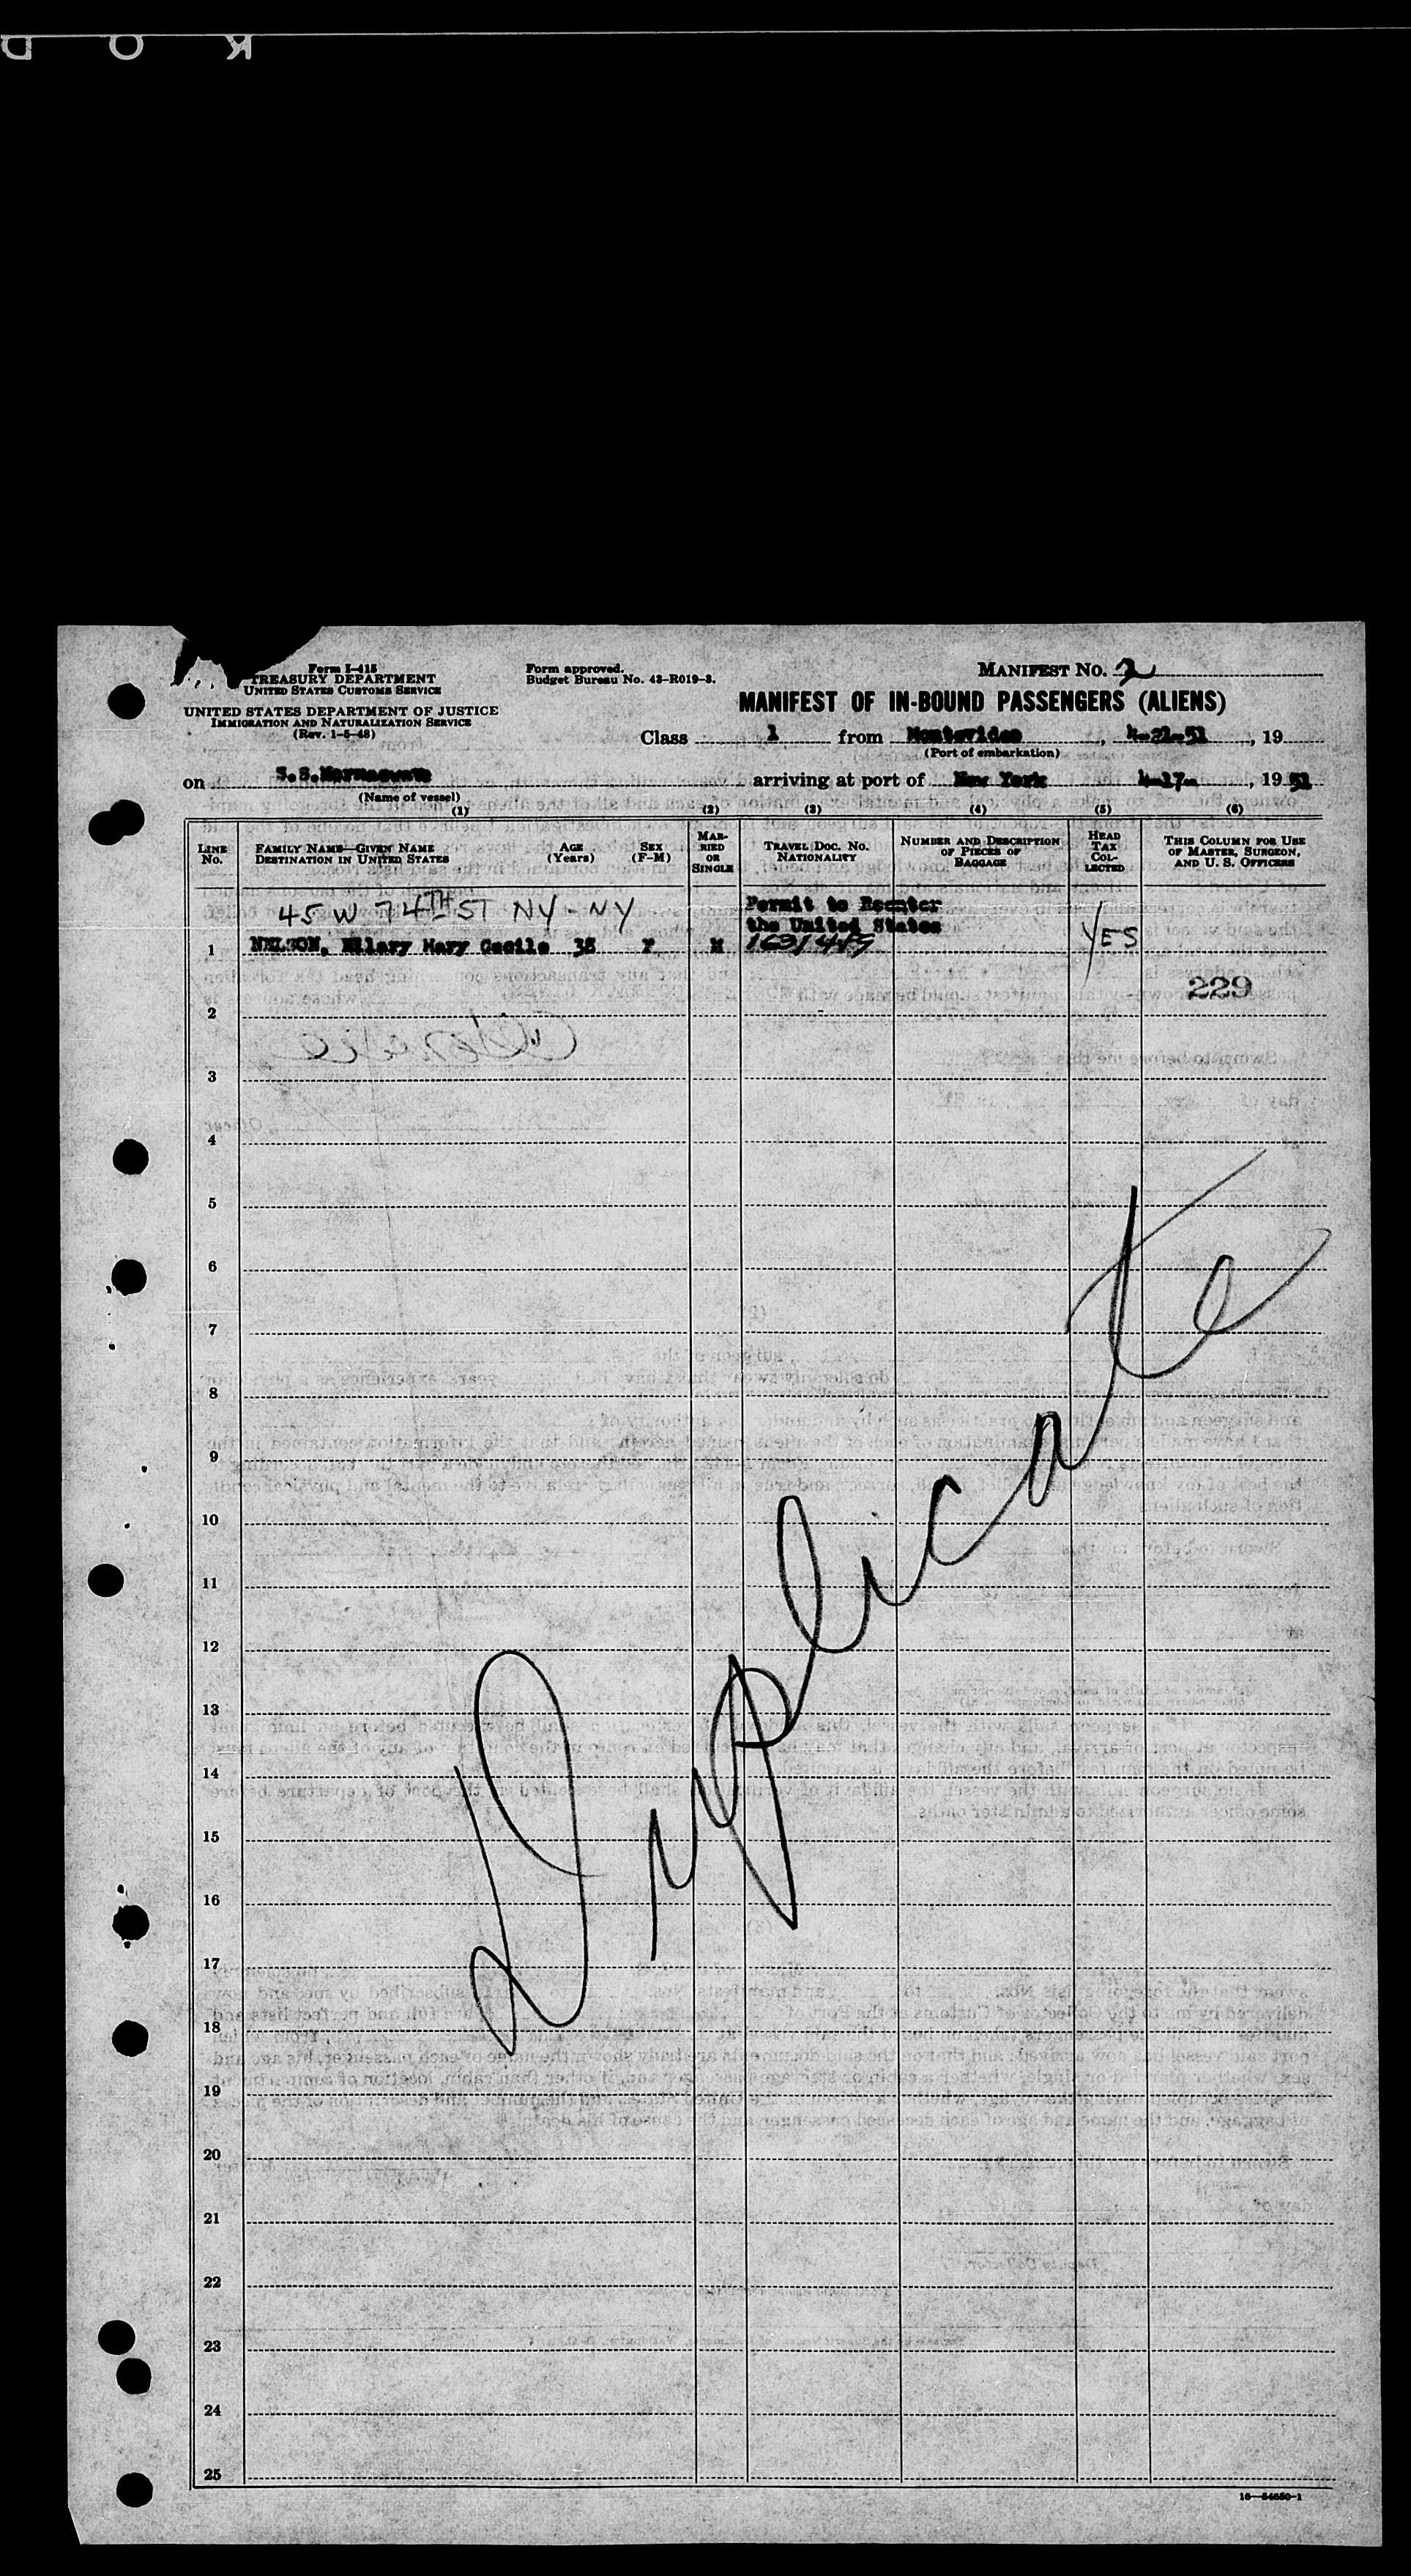 KOD
Form I-415
TREASURY DEPARTMENT
UNITED STATES CUSTOMS SERVICE
UNITED STATES DEPARTMENT OF JUSTICE
IMMIGRATION AND NATURALIZATION SERVICE
(Rev. 1-5-48)
Form approved.
Budget Bureau No. 43-R019-3.
MANIFEST No. 2
MANIFEST OF IN-BOUND PASSENGERS (ALIENS)
Class 1 from Montevideo, 4-21-51, 19
(Port of embarkation)
on S.S. arriving at port of New York 4-17-, 19 51
(Name of vessel)
(1) (2) (3) (4) (5) (6)
LINE No. FAMILY NAME—GIVEN NAME DESTINATION IN UNITED STATES AGE (Years) SEX (F-M) MARRIED OR SINGLE TRAVEL DOC. NO. NATIONALITY NUMBER AND DESCRIPTION OF PIECES OF BAGGAGE HEAD TAX COLLECTED THIS COLUMN FOR USE OF MASTER, SURGEON, AND U. S. OFFICERS
45 W 74TH ST NY-NY Permit to Reenter
the United States
1 NELSON, Hilary Mary Cecile 38 F M YES
229
2
3
4
5
6
7
8
9
10
11
12
13
14
15
16
17
18
19
20
21
22
23
24
25
Duplicate